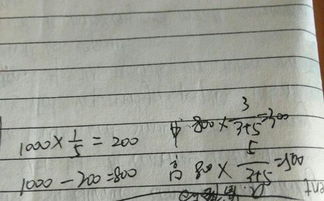 1000 × 1/5 = 200
1000 − 200 = 800
中 800 × 3/3+5 = 300
高 800 × 5/3+5 = 500